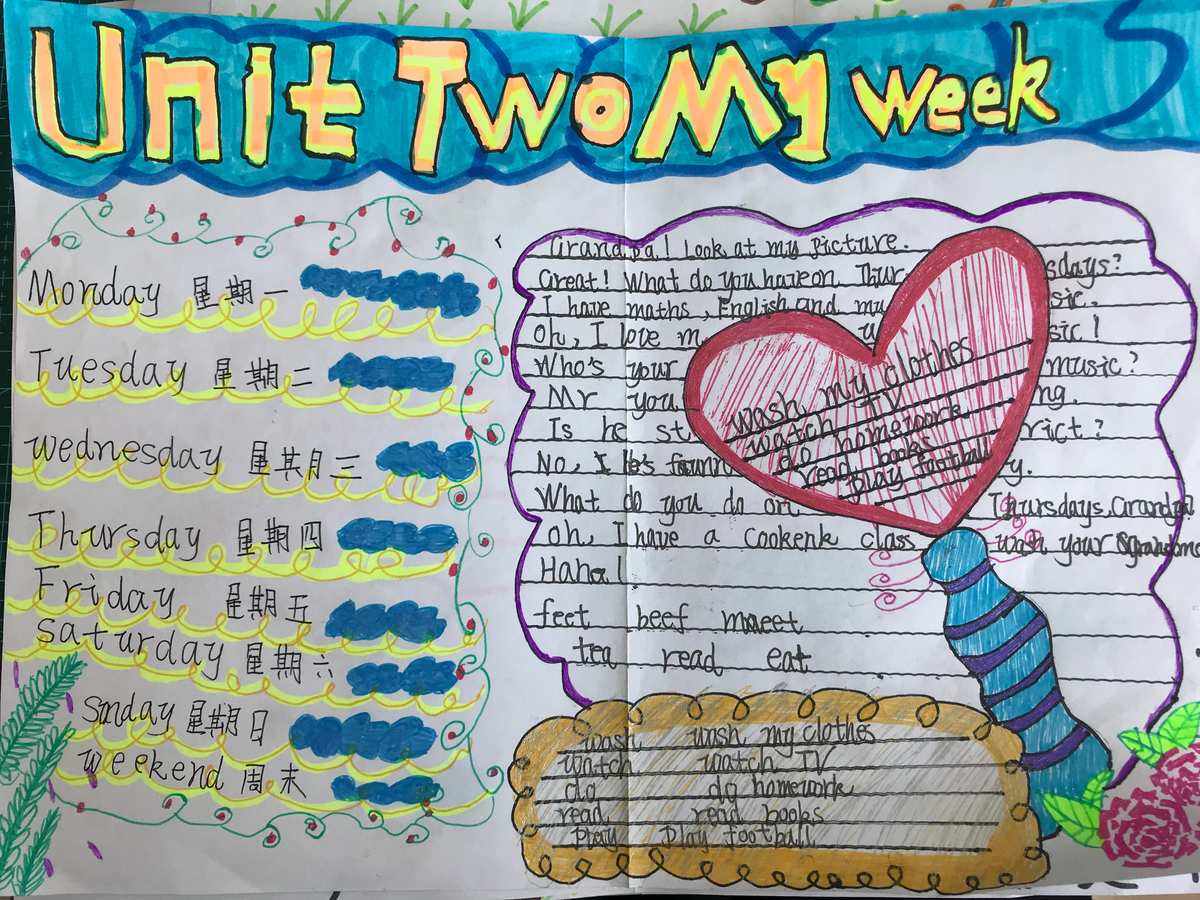 Unit Two My Week
Monday 星期一
Tuesday 星期二
wednesday 星期三
Thursday 星期四
Friday 星期五
saturday 星期六
Sunday 星期日
weekend 周末
Grandpa! Look at my picture.
Great! What do you have on Thursdays?
I have maths, English and music.
Oh, I love music!
Who's your music?
Mr you ng.
Is he strict?
No,
What do you do on Thursdays, Grandpa
Oh, I have a class wash your
Haha!
feet beef
tea read eat
wash my clothes
watch TV
do homework
read books
play football
wash wash my clothes
watch watch TV
do do homework
read read books
play play football